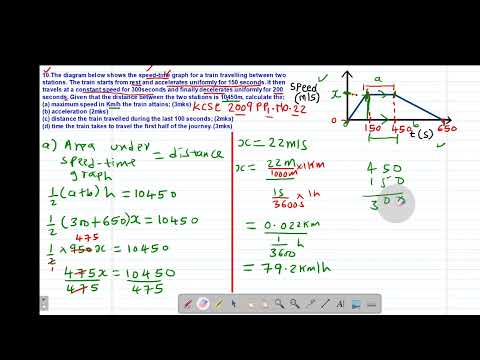 10.The diagram below shows the speed-time graph for a train travelling between two
stations. The train starts from rest and accelerates uniformly for 150 seconds. It then
travels at a constant speed for 300seconds and finally decelerates uniformly for 200
seconds. Given that the distance between the two stations is 10450m, calculate the:
(a) maximum speed in Km/h the train attains; (3mks)
KCSE 2009 PP1 No.22
(b) acceleration (2mks)
(c) distance the train travelled during the last 100 seconds; (2mks)
(d) time the train takes to travel the first half of the journey. (3mks)
speed
(m/s)
a
x
b
150 450 650
t(s)
a) Area under
speed-time
graph
= distance
1/2 (a+b) h = 10450
1/2 (300+650)x = 10450
475
1/2 × 950x = 10450
1
475x = 10450
475 475
x = 22m/s
x = 22m × 1km
1000m
1s × 1h
3600s
= 0.022km
1 h
3600
= 79.2km/h
450
150
300